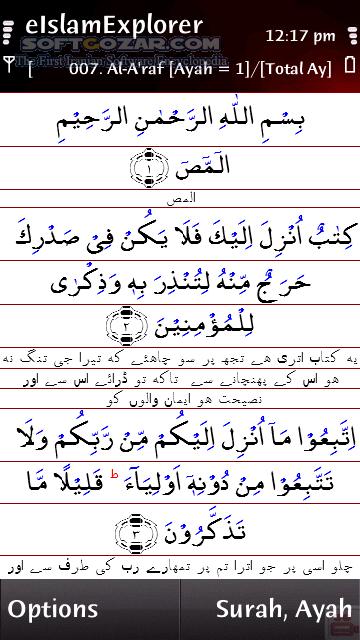 eIslamExplorer
SOFTGOZAR.COM
The First Iranian Software Encyclopedia
12:17 pm
[ 007. Al-A'raf [Ayah = 1]/[Total Ay]
بِسْمِ اللّٰهِ الرَّحْمٰنِ الرَّحِيْمِ
الٓمّٓصٓ ۝١
المص
كِتٰبٌ اُنْزِلَ اِلَيْكَ فَلَا يَكُنْ فِىْ صَدْرِكَ
حَرَجٌ مِّنْهُ لِتُنْذِرَ بِهٖ وَذِكْرٰى
لِلْمُؤْمِنِيْنَ ۝٢
يه كتاب اترى هے تجھ پر سو چاهئے كه تيرا جى تنگ نه
هو اس كے پهنچانے سے تاكه تو ڈرائے اس سے اور
نصيحت هو ايمان والوں كو
اِتَّبِعُوْا مَآ اُنْزِلَ اِلَيْكُمْ مِّنْ رَّبِّكُمْ وَلَا
تَتَّبِعُوْا مِنْ دُوْنِهٖٓ اَوْلِيَآءَ ؕ قَلِيْلًا مَّا
تَذَكَّرُوْنَ ۝٣
چلو اسى پر جو اترا تم پر تمهارے رب كى طرف سے اور
Options
Surah, Ayah